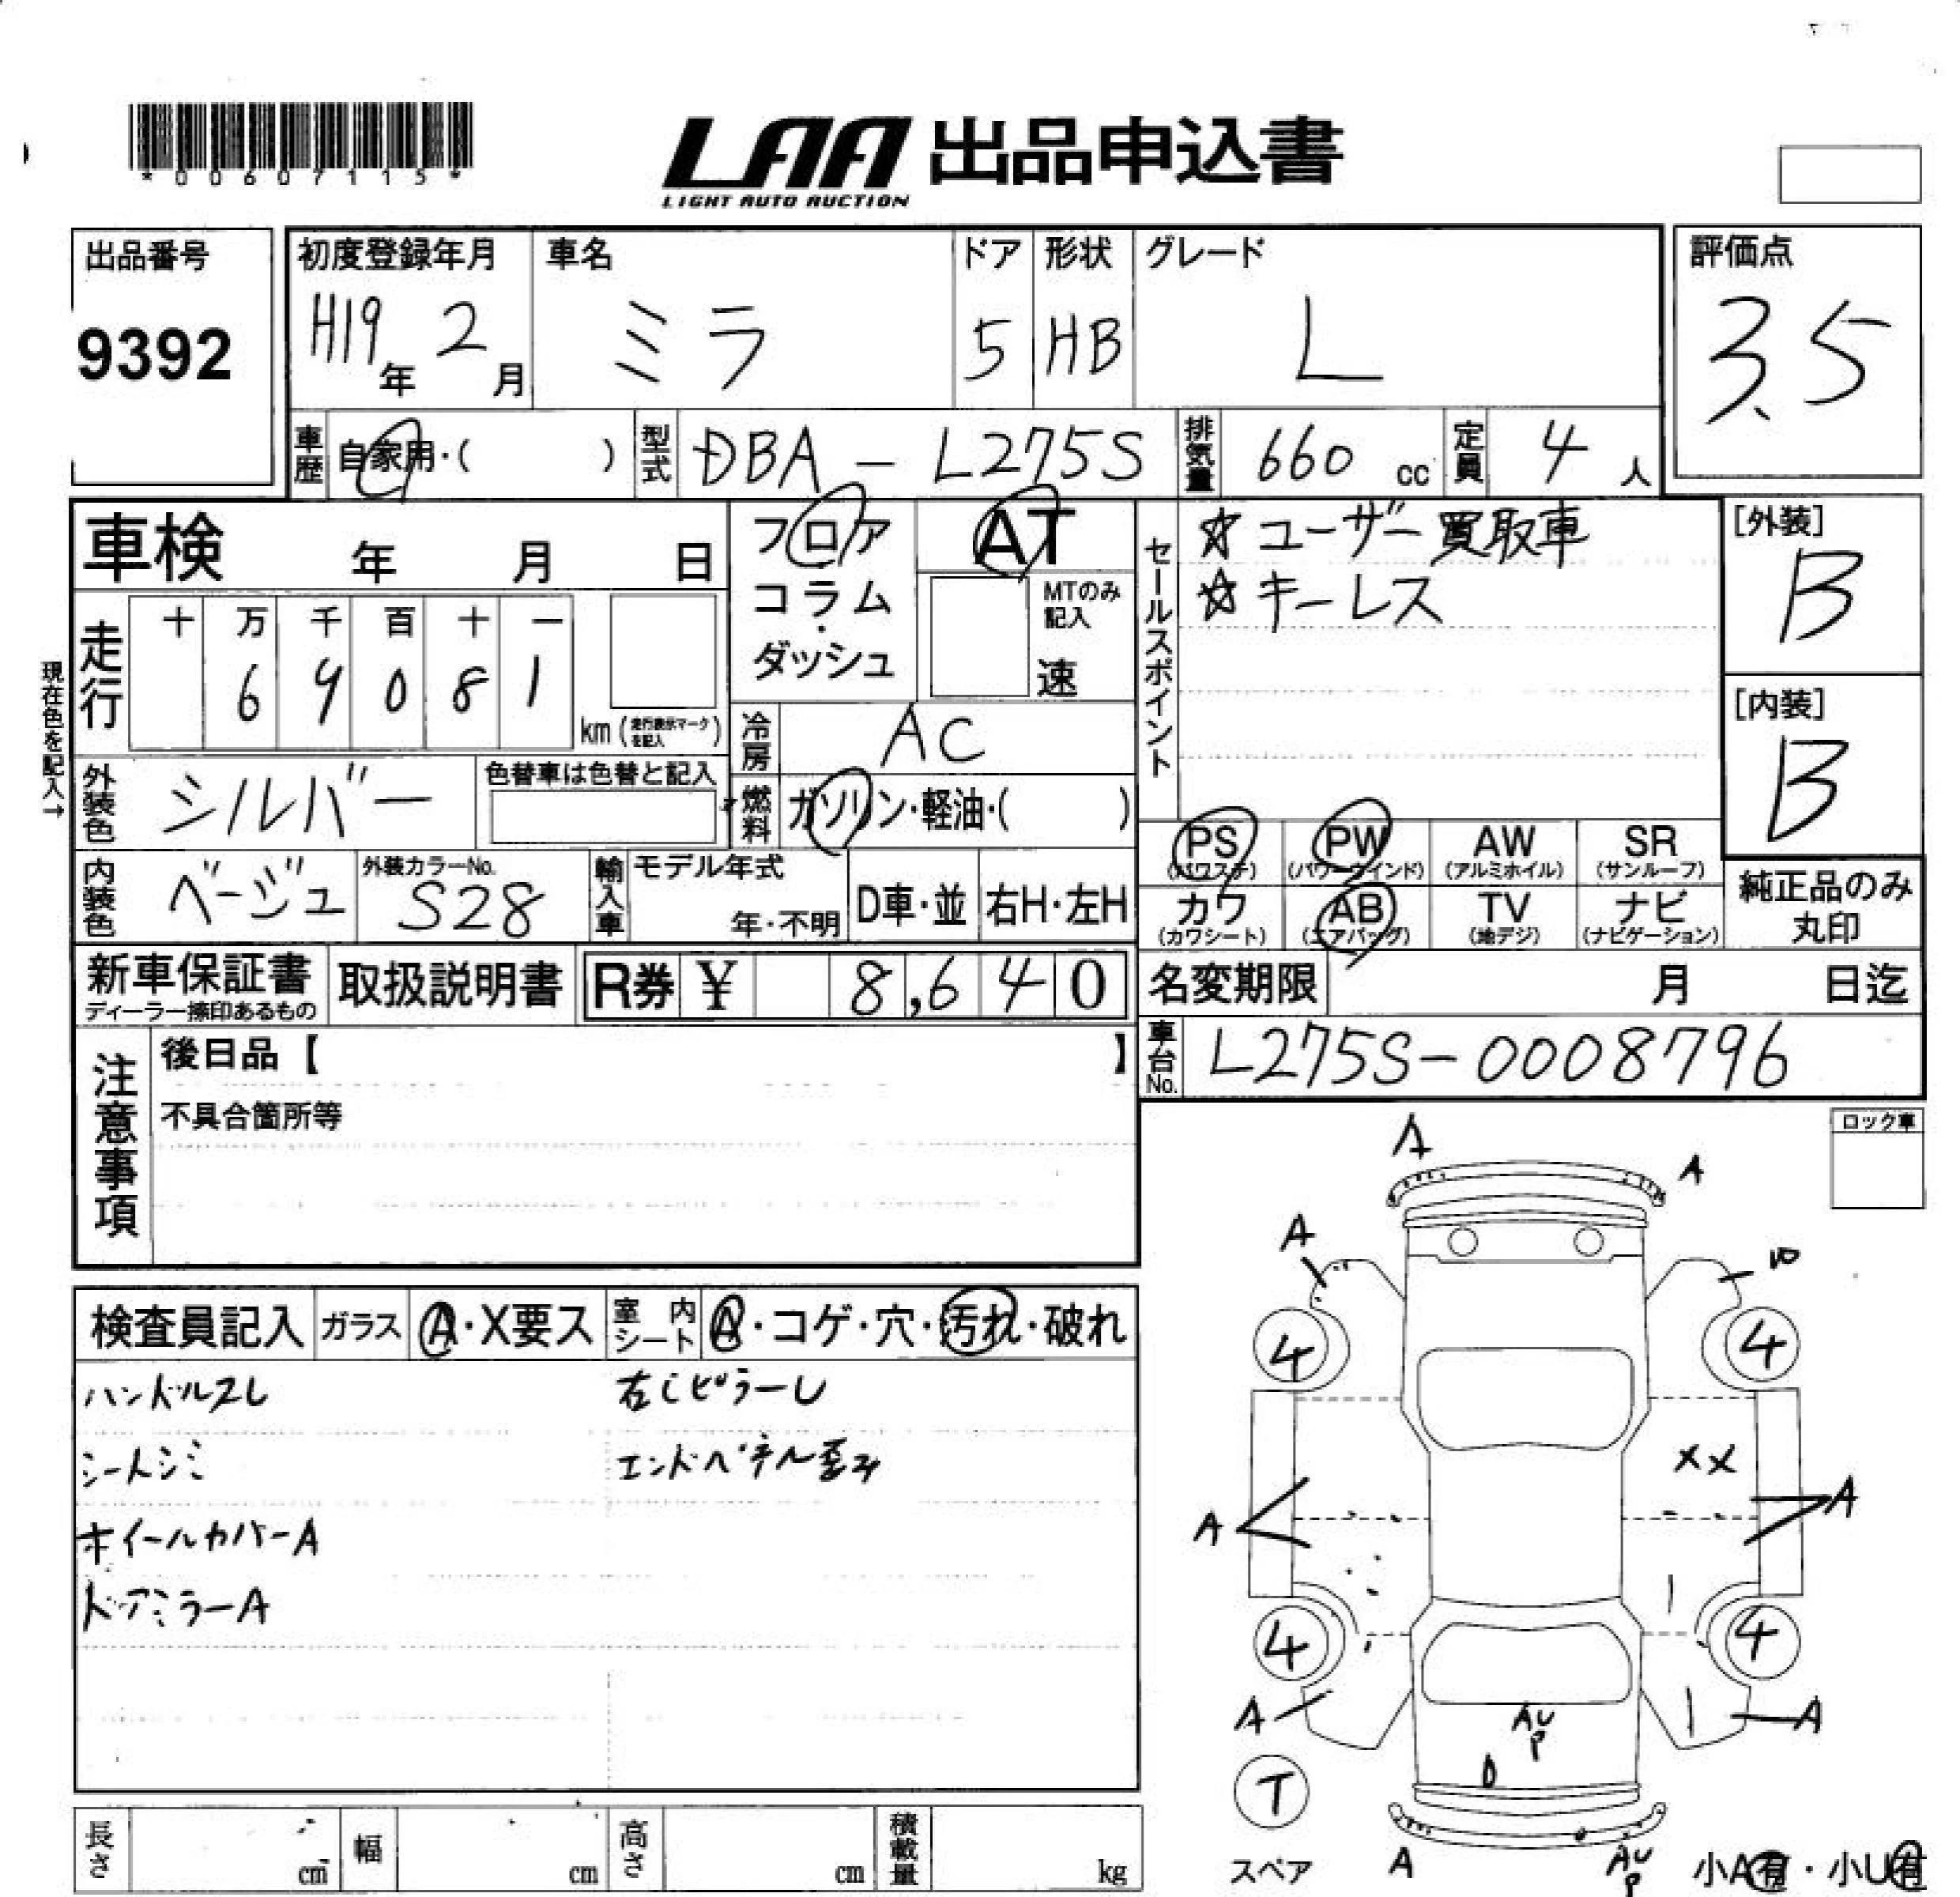 *00607115*
LAA 出品申込書
LIGHT AUTO AUCTION
出品番号
9392
初度登録年月
H19年 2月
車名
ミラ
ドア
5
形状
HB
グレード
L
評価点
3.5
車歴 自家用・( )
型式 DBA - L275S
排気量 660 cc
定員 4 人
車検 年 月 日
フロア
コラム
・
ダッシュ
AT
MTのみ
記入
速
セールスポイント
☆ユーザー買取車
☆キーレス
[外装]
B
[内装]
B
現在色を記入→
走行
十 万 千 百 十 一
6 9 0 8 1
km (走行表示マークを記入)
冷房 AC
外装色 シルバー
色替車は色替と記入
燃料 ガソリン・軽油・( )
内装色 ベージュ
外装カラーNo.
S28
輸入車 モデル年式
年・不明
D車・並
右H・左H
PS
(パワステ)
PW
(パワーウインド)
AW
(アルミホイル)
SR
(サンルーフ)
カワ
(カワシート)
AB
(エアバッグ)
TV
(地デジ)
ナビ
(ナビゲーション)
純正品のみ
丸印
新車保証書
ディーラー捺印あるもの
取扱説明書
R券 ¥ 8,640
名変期限 月 日迄
車台No. L275S-0008796
注意事項
後日品【 】
不具合箇所等
ロック車
検査員記入
ガラス A・X要ス
室内シート A・コゲ・穴・汚れ・破れ
ハンドルスレ
右CピラーU
シートシミ
エンドパネル歪み
ホイールカバーA
ドアミラーA
A
A
A
4
4
XX
A
A
4
4
A
A
AU
P
T
スペア
A
AU
P
小A有・小U有
長さ cm
幅 cm
高さ cm
積載量 kg